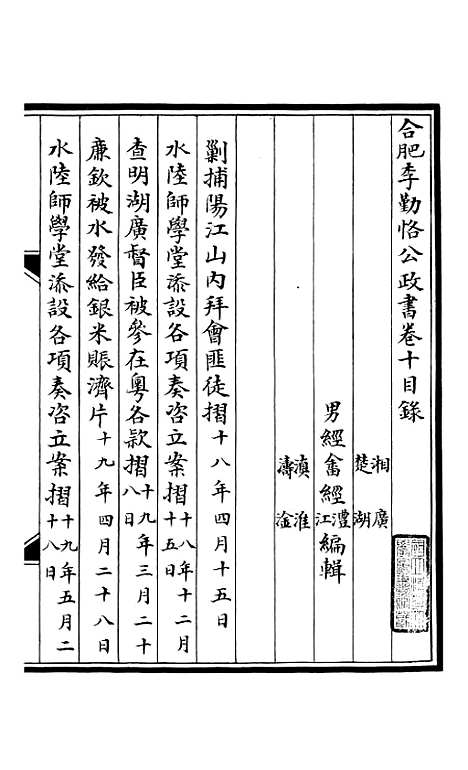 合肥李勤恪公政書卷十目錄
湘楚 廣湖
男經畬經澧江編輯
滇濤 淮淦
剿捕陽江山內拜會匪徒摺十八年四月十五日
水陸師學堂添設各項奏咨立案摺十八年十二月十五日
查明湖廣督臣被參在粵各款摺十九年三月二十八日
廉欽被水發給銀米賑濟片十九年四月二十八日
水陸師學堂添設各項奏咨立案摺十九年五月二十八日